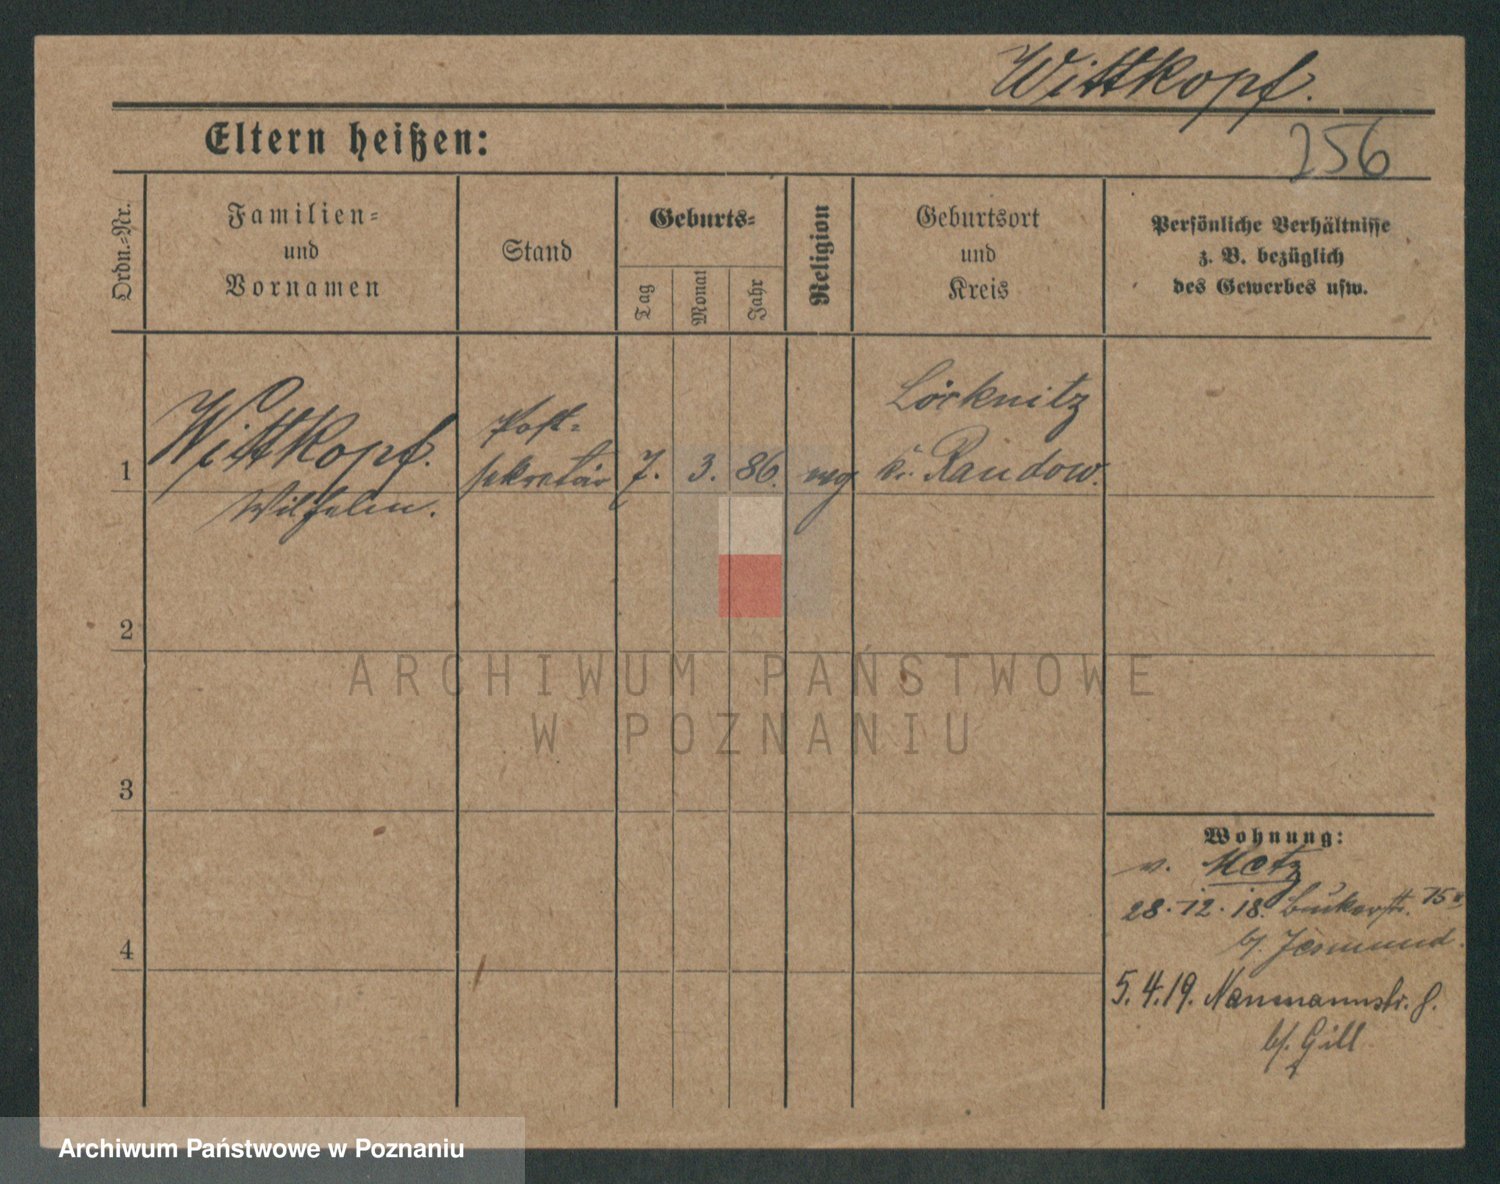 Wittkopf.
256
Eltern heißen:
Ordn.-Nr.
Familien-
und
Vornamen
Stand
Geburts-
Tag
Monat
Jahr
Religion
Geburtsort
und
Kreis
Persönliche Verhältnisse
z. B. bezüglich
des Gewerbes usw.
1
Wittkopf.
Wilhelm.
Post-
sekretär
7.
3.
86.
evg
Löcknitz
Kr. Randow.
2
3
4
Wohnung:
v. Metz
28.12.18. Bukerstr. 75
b/ Jesmund.
5.4.19. Naumannstr. 8.
b/. Gill
ARCHIWUM PAŃSTWOWE
W POZNANIU
Archiwum Państwowe w Poznaniu